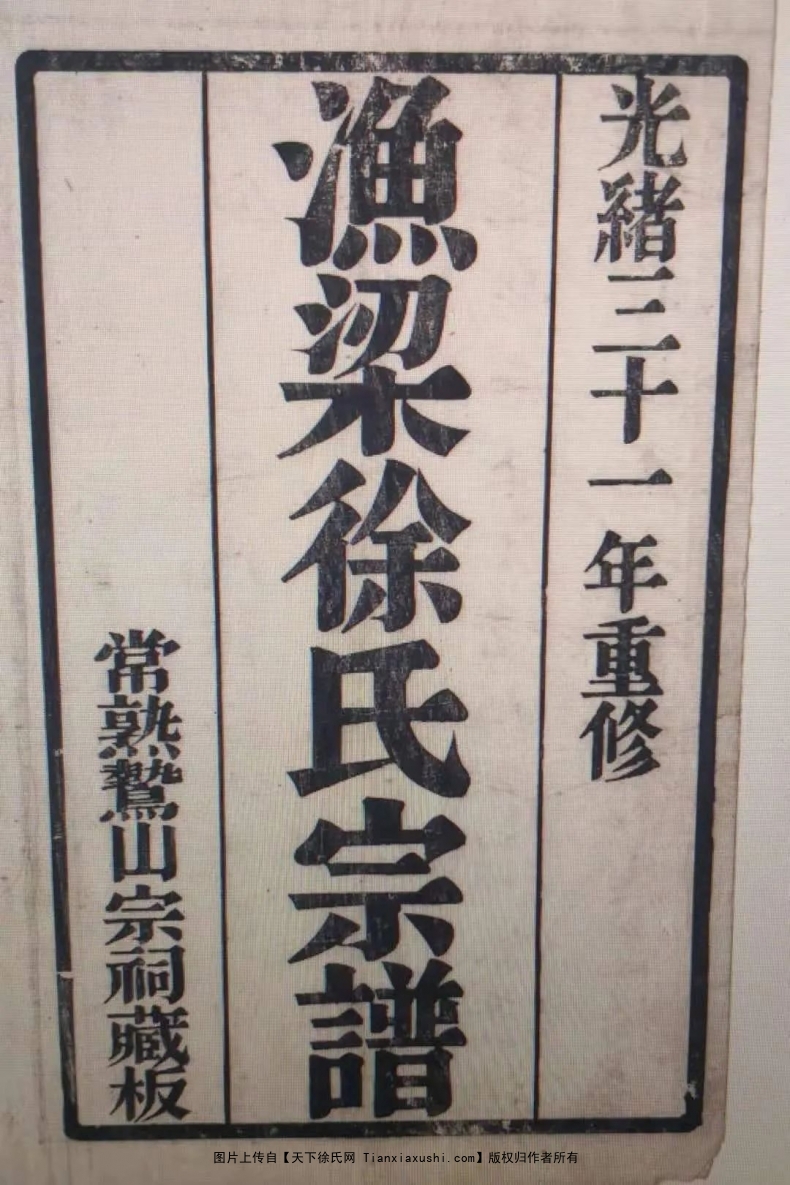 光緒三十一年重修
漁梁徐氏宗譜
常熟鷲山宗祠藏板
图片上传自【天下徐氏网 Tianxiaxushi.com】版权归作者所有